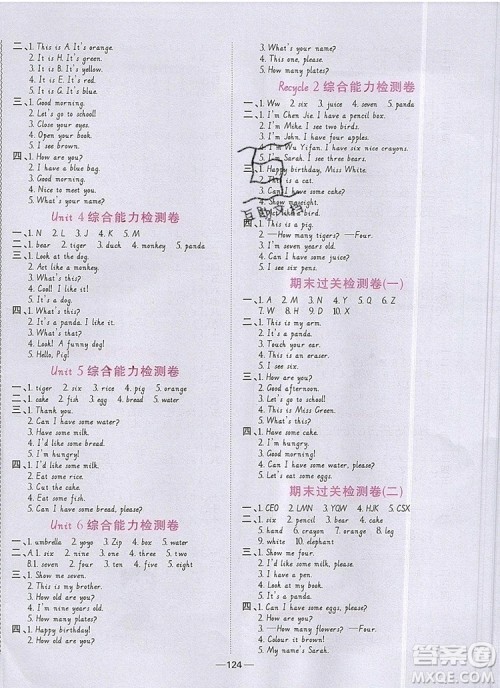 二、1. This is A. It's orange.
2. It is H. It's green.
3. It is B. It's yellow.
4. It is E. It's red.
5. It is G. It's blue.
三、1. Good morning.
2. Let's go to school!
3. Close your eyes.
4. Open your book.
5. I see brown.
四、1. How are you?
2. I have a blue bag.
3. It's green.
4. Good morning.
5. What's this?
Unit 4 综合能力检测卷
一、1. N 2. L 3. J 4. K 5. M
二、1. bear 2. tiger 3. duck 4. monkey 5. dog
三、1. Look at the dog.
2. Act like a monkey.
3. What's this?
4. Cool! I like it.
5. It's a dog.
四、1. What's this?
2. It's a panda. I like it.
3. What's that?
4. Look! A funny dog!
5. Hello, Pig!
Unit 5 综合能力检测卷
一、1. tiger 2. six 3. rice 4. pig 5. orange
二、1. cake 2. fish 3. egg 4. bread 5. water
三、1. Thank you.
2. Can I have some water?
3. Have some milk.
4. I'd like some bread.
5. I'm hungry!
四、1. I'd like some milk.
2. Eat some rice.
3. Cut the bread.
4. Eat some fish.
5. Can I have some bread, please?
Unit 6 综合能力检测卷
一、1. umbrella 2. yoyo 3. Zip 4. box 5. window
二、A 1. six 2. nine 3. two 4. five 5. one
B. 1. seven 2. four 3. ten 4. eight
三、1. Show me seven.
2. This is my brother.
3. How old are you?
4. I have two birds.
5. How many plates?
四、1. Happy birthday!
2. How old are you?
3. What's this?
4. This one, please.
5. How many plates?
Recycle 2 综合能力检测卷
一、1. Ww 2. six 3. juice 4. seven 5. panda
二、1. I'm Chen Jie. I have a pencil box.
2. I'm Mike. I have two birds.
3. I'm John. I have four apples.
4. I'm Wu Yifan. I have six nice crayons.
5. I'm Sarah. I see three bears.
三、1. Happy birthday, Miss White.
2. This is a cat.
3. Can I have some cake?
4. Show me eight.
5. Act like a bird.
四、1. This is a pig.
2. —How many tigers? —Four.
3. I'm seven years old.
4. Can I have some juice?
5. I see six pens.
期末过关检测卷(一)
一、1. ABC 2. NM 3. IJK 4. EFG 5. HI 6. XYZ
7. W 8. P 9. H 10. O
二、1. This is my arm.
2. It's a panda.
3. Touch your ear.
4. I am hungry.
5. I see six bears.
三、1. I see yellow.
2. Good afternoon.
3. Let's go to school!
4. This is Miss Green.
5. I'd like some juice.
四、1. Have some cake.
2. I'm hungry.
3. I'd like some bread.
4. How many plates?
5. Can I have some water, please?
期末过关检测卷(二)
一、1. CEO 2. LMN 3. YQW 4. HJK 5. CSX
二、1. nose 2. duck 3. pencil 4. rice 5. cake
6. orange 7. face 8. seven
9. white 10. elephant
三、1. Show me four.
2. I'd like some milk, please.
3. I have a pen.
4. Look at me.
5. It's a panda.
四、1. Can I have some eggs, please?
2. —How many flowers? —Four.
3. Colour it brown!
4. Can I have some eggs, please?
5. My name's Sarah.
124
答案圈
MXQE.COM